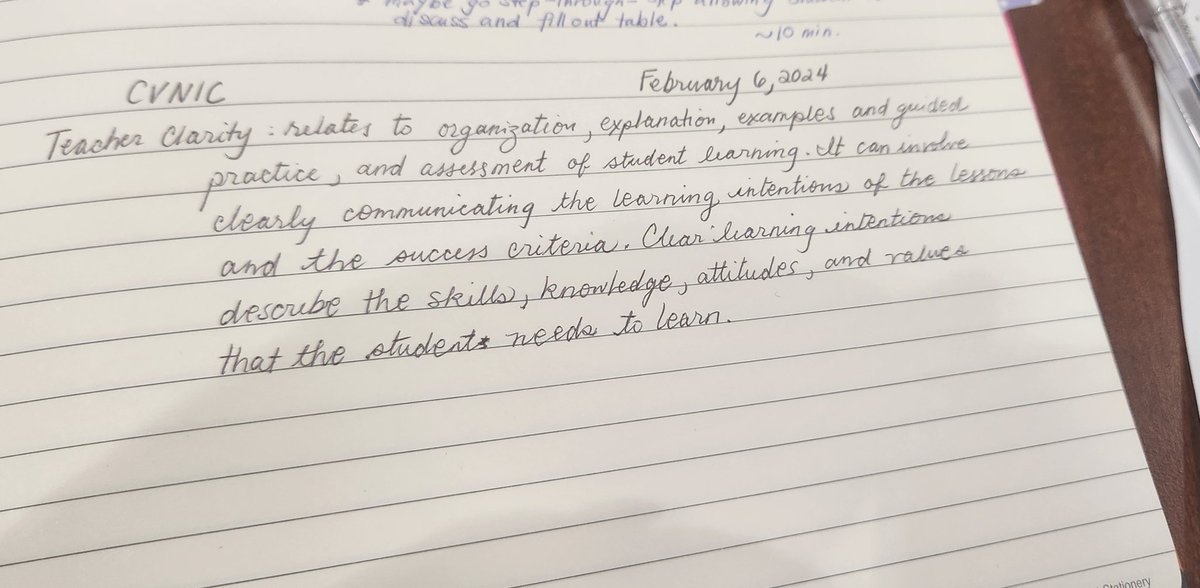 maybe go step-through-
discuss and fill out table.
~10 min.
CVNIC
February 6, 2024
Teacher Clarity: relates to organization, explanation, examples and guided
practice, and assessment of student learning. It can involve
clearly communicating the learning intentions of the lessons
and the success criteria. Clear learning intentions
describe the skills, knowledge, attitudes, and values
that the students needs to learn.
Stationery